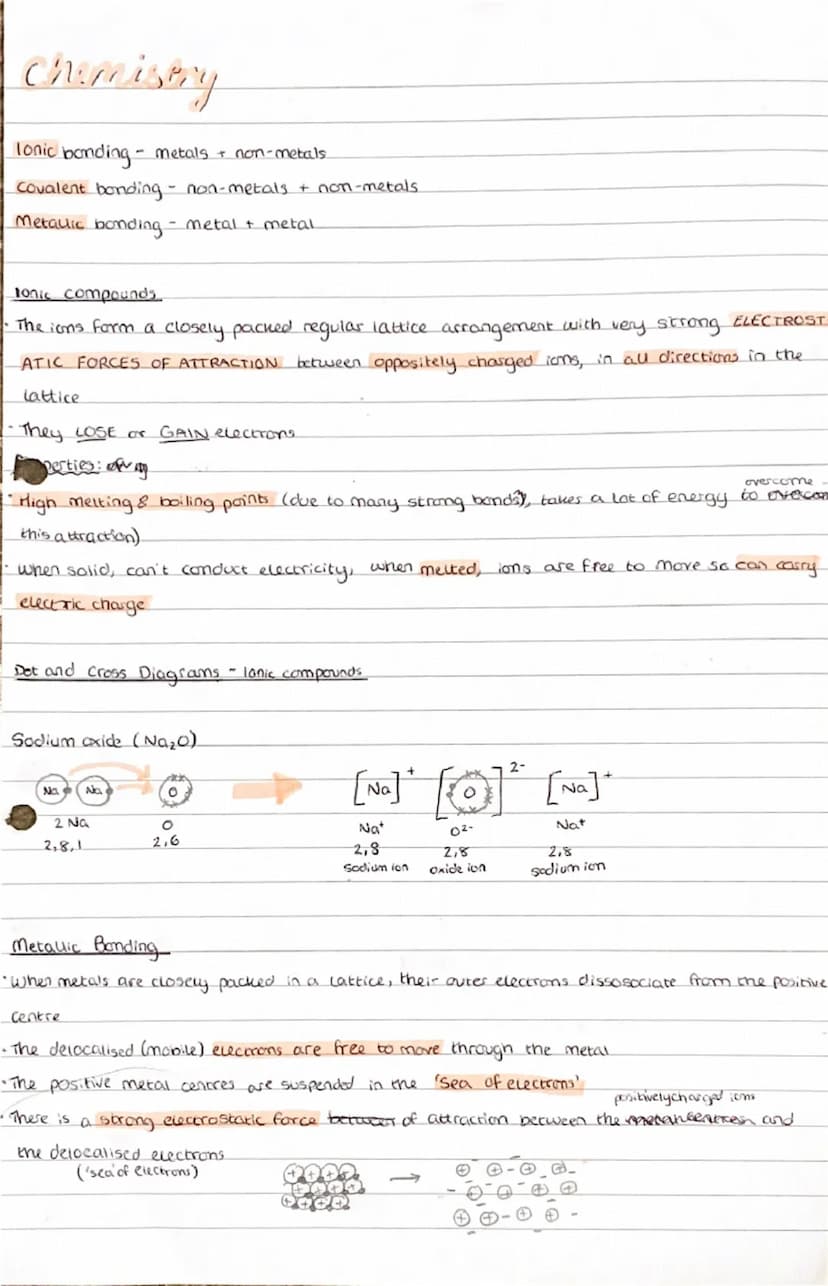 Chemistry
Ionic bonding - metals + non-metals
Covalent bonding - non-metals + non-metals
Metallic bonding - metal + metal
Ionic compounds
· The ions form a closely packed regular lattice arrangement with very strong ELECTROST
ATIC FORCES OF ATTRACTION between oppositely charged ions, in all directions in the
lattice
· They LOSE or GAIN electrons
perties:
overcome
· High melting & boiling points (due to many strong bonds), takes a lot of energy to overcom
this attraction)
· When solid, can't conduct electricity, when melted, ions are free to move so can carry
electric charge
Dot and Cross Diagrams - Ionic compounds
Sodium oxide (Na₂O)
Na Na O [Na]⁺ [O]²⁻ [Na]⁺
2 Na O Na⁺ O²⁻ Na⁺
2,8,1 2,6 2,8 2,8 2,8
sodium ion oxide ion sodium ion
Metallic Bonding
· When metals are closely packed in a lattice, their outer electrons dissosociate from the positive
centre
· The delocalised (mobile) electrons are free to move through the metal
· The positive metal centres are suspended in the 'sea of electrons'
positively charged ions
· There is a strong electrostatic force between of attraction between the metal centres and
the delocalised electrons
('sea' of electrons)